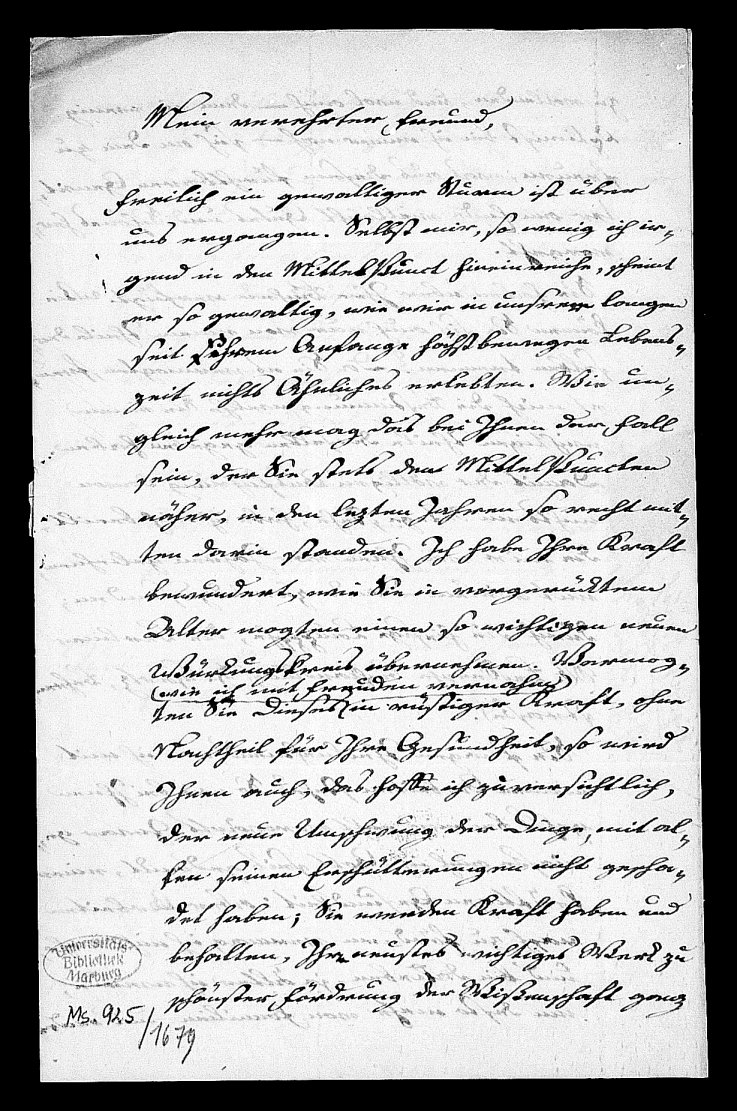 Mein verehrter Freund,
Freilich ein gewaltiger Sturm ist über
uns ergangen. Selbst mir, so wenig ich ir-
gend in den Mittelpunct hineinreiche, scheint
er so gewaltig, wie wir in unsrer langen
seit ihrem Anfange höchst bewegen Lebens-
zeit nichts Ähnliches erlebten. Wie un-
gleich mehr mag das bei Ihnen der Fall
sein, der Sie stets dem Mittelpuncten
näher, in den lezten Jahren so recht mit-
ten darin standen. Ich habe Ihre Kraft
bewundert, wie Sie in vorgerücktem
Alter mogten einen so wichtigen neuen
Würkungskreis übernehmen. Vermog-
(wie ich mit Freuden vernahm)
ten Sie Dieses in rüstiger Kraft, ohne
Nachtheil für Ihre Gesundheit, so wird
Ihnen auch, das hoffe ich zuversichtlich,
der neue Umschwung der Dinge, mit al-
len seinen Erschütterungen nicht gescha-
det haben; Sie werden Kraft haben und
behalten, Ihr neustes wichtiges Werk zu
schönster Fördrung der Wißenschaft ganz
Universitäts-
Bibliothek
Marburg
Ms. 925
/1679